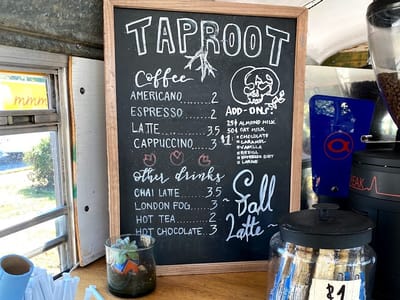 TAPROOT
Coffee
AMERICANO 2
ESPRESSO 2
LATTE 3.5
CAPPUCCINO 3
other drinks
CHAI LATTE 3.5
LONDON FOG 3
HOT TEA 2
HOT CHOCOLATE 3
ADD-ONS:
25¢ ALMOND MILK
50¢ OAT MILK
$1: CHOCOLATE
CARAMEL
VANILLA
REFILL
LARGE
~ Fall ~
~ Latte ~
mmm
$1